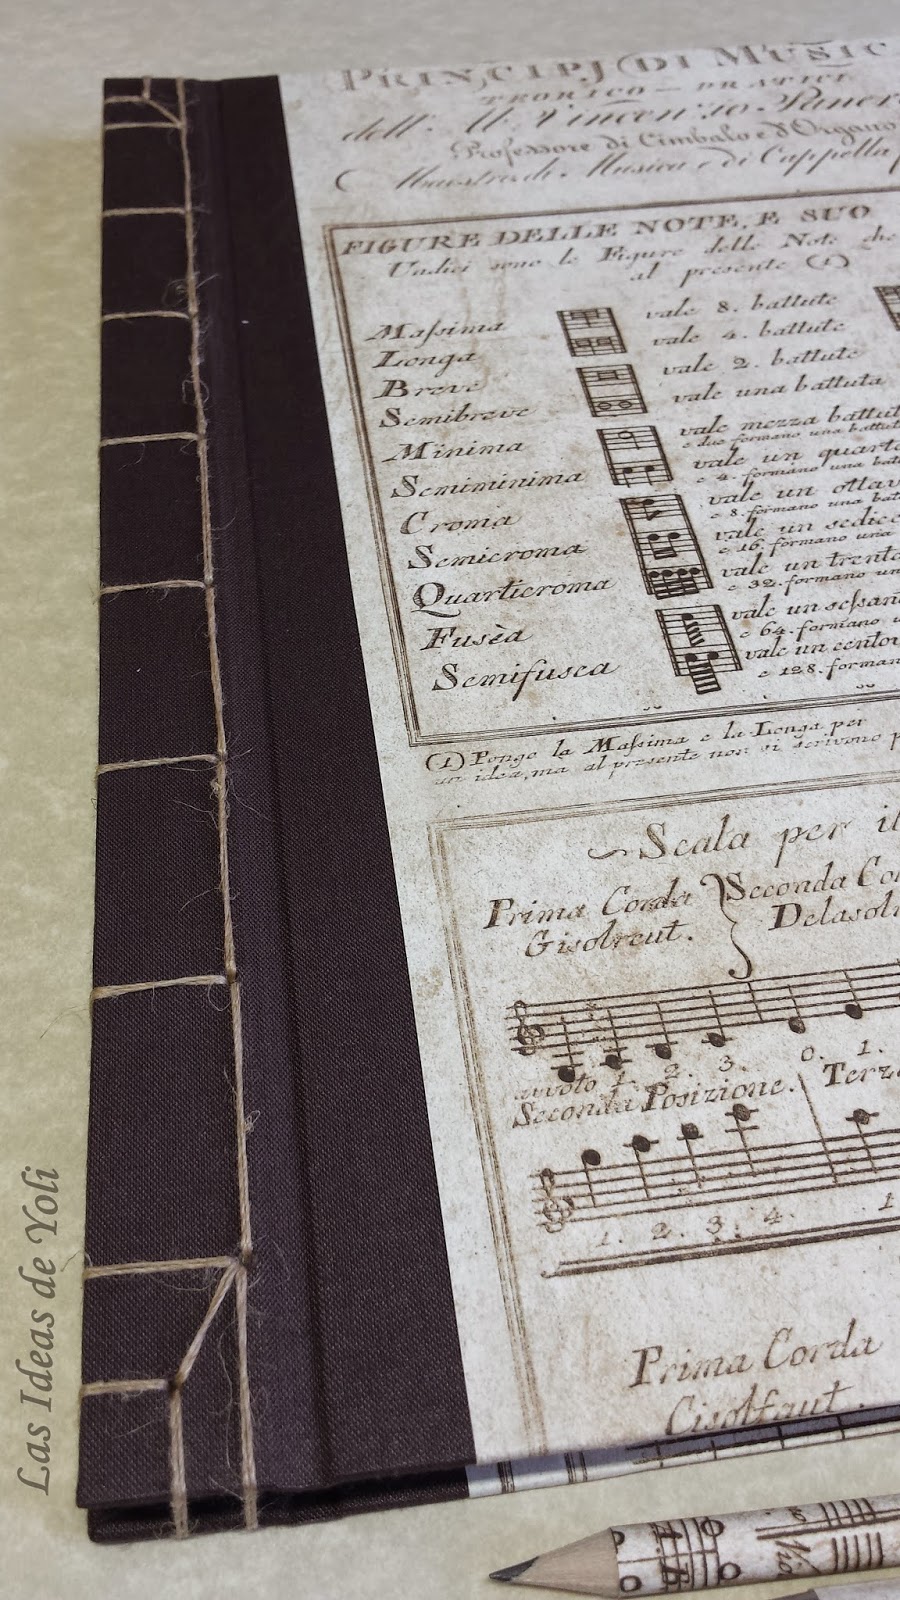 PRINCIPJ DI MUSIC
TEORICO-PRATICI
dell'. Vincenzo
Professore di Cimbalo e d'Organo
Maestro di Musica e di Cappella
FIGURE DELLE NOTE, E SUO
Undici sono le Figure delle Note che
al presente
Maſsima vale 8. battute
Longa vale 4. battute
Breve vale 2. battute
Semibreve vale una battuta
Minima vale mezza battut
e due formano una battut
Semiminima vale un quarto
e 4. formano una bat
Croma vale un ottav
e 8. formano una bat
Semicroma vale un sedic
e 16. formano una
Quarticroma vale un trent
e 32. formano un
Fusèa vale un seſsan
e 64. formano
Semifusea vale un cento
e 128. forman
(1) Pongo la Maſsima e la Longa per
un idea, ma al presente non si scrivono
Scala per il
Prima Corda Seconda Co
Gisolreut. Delasol
0. 1.
1. 2. 3.
Seconda Posizione. Terz
1. 2. 3. 4. 1
Prima Corda
Cisolfaut.
Las Ideas de Yoli